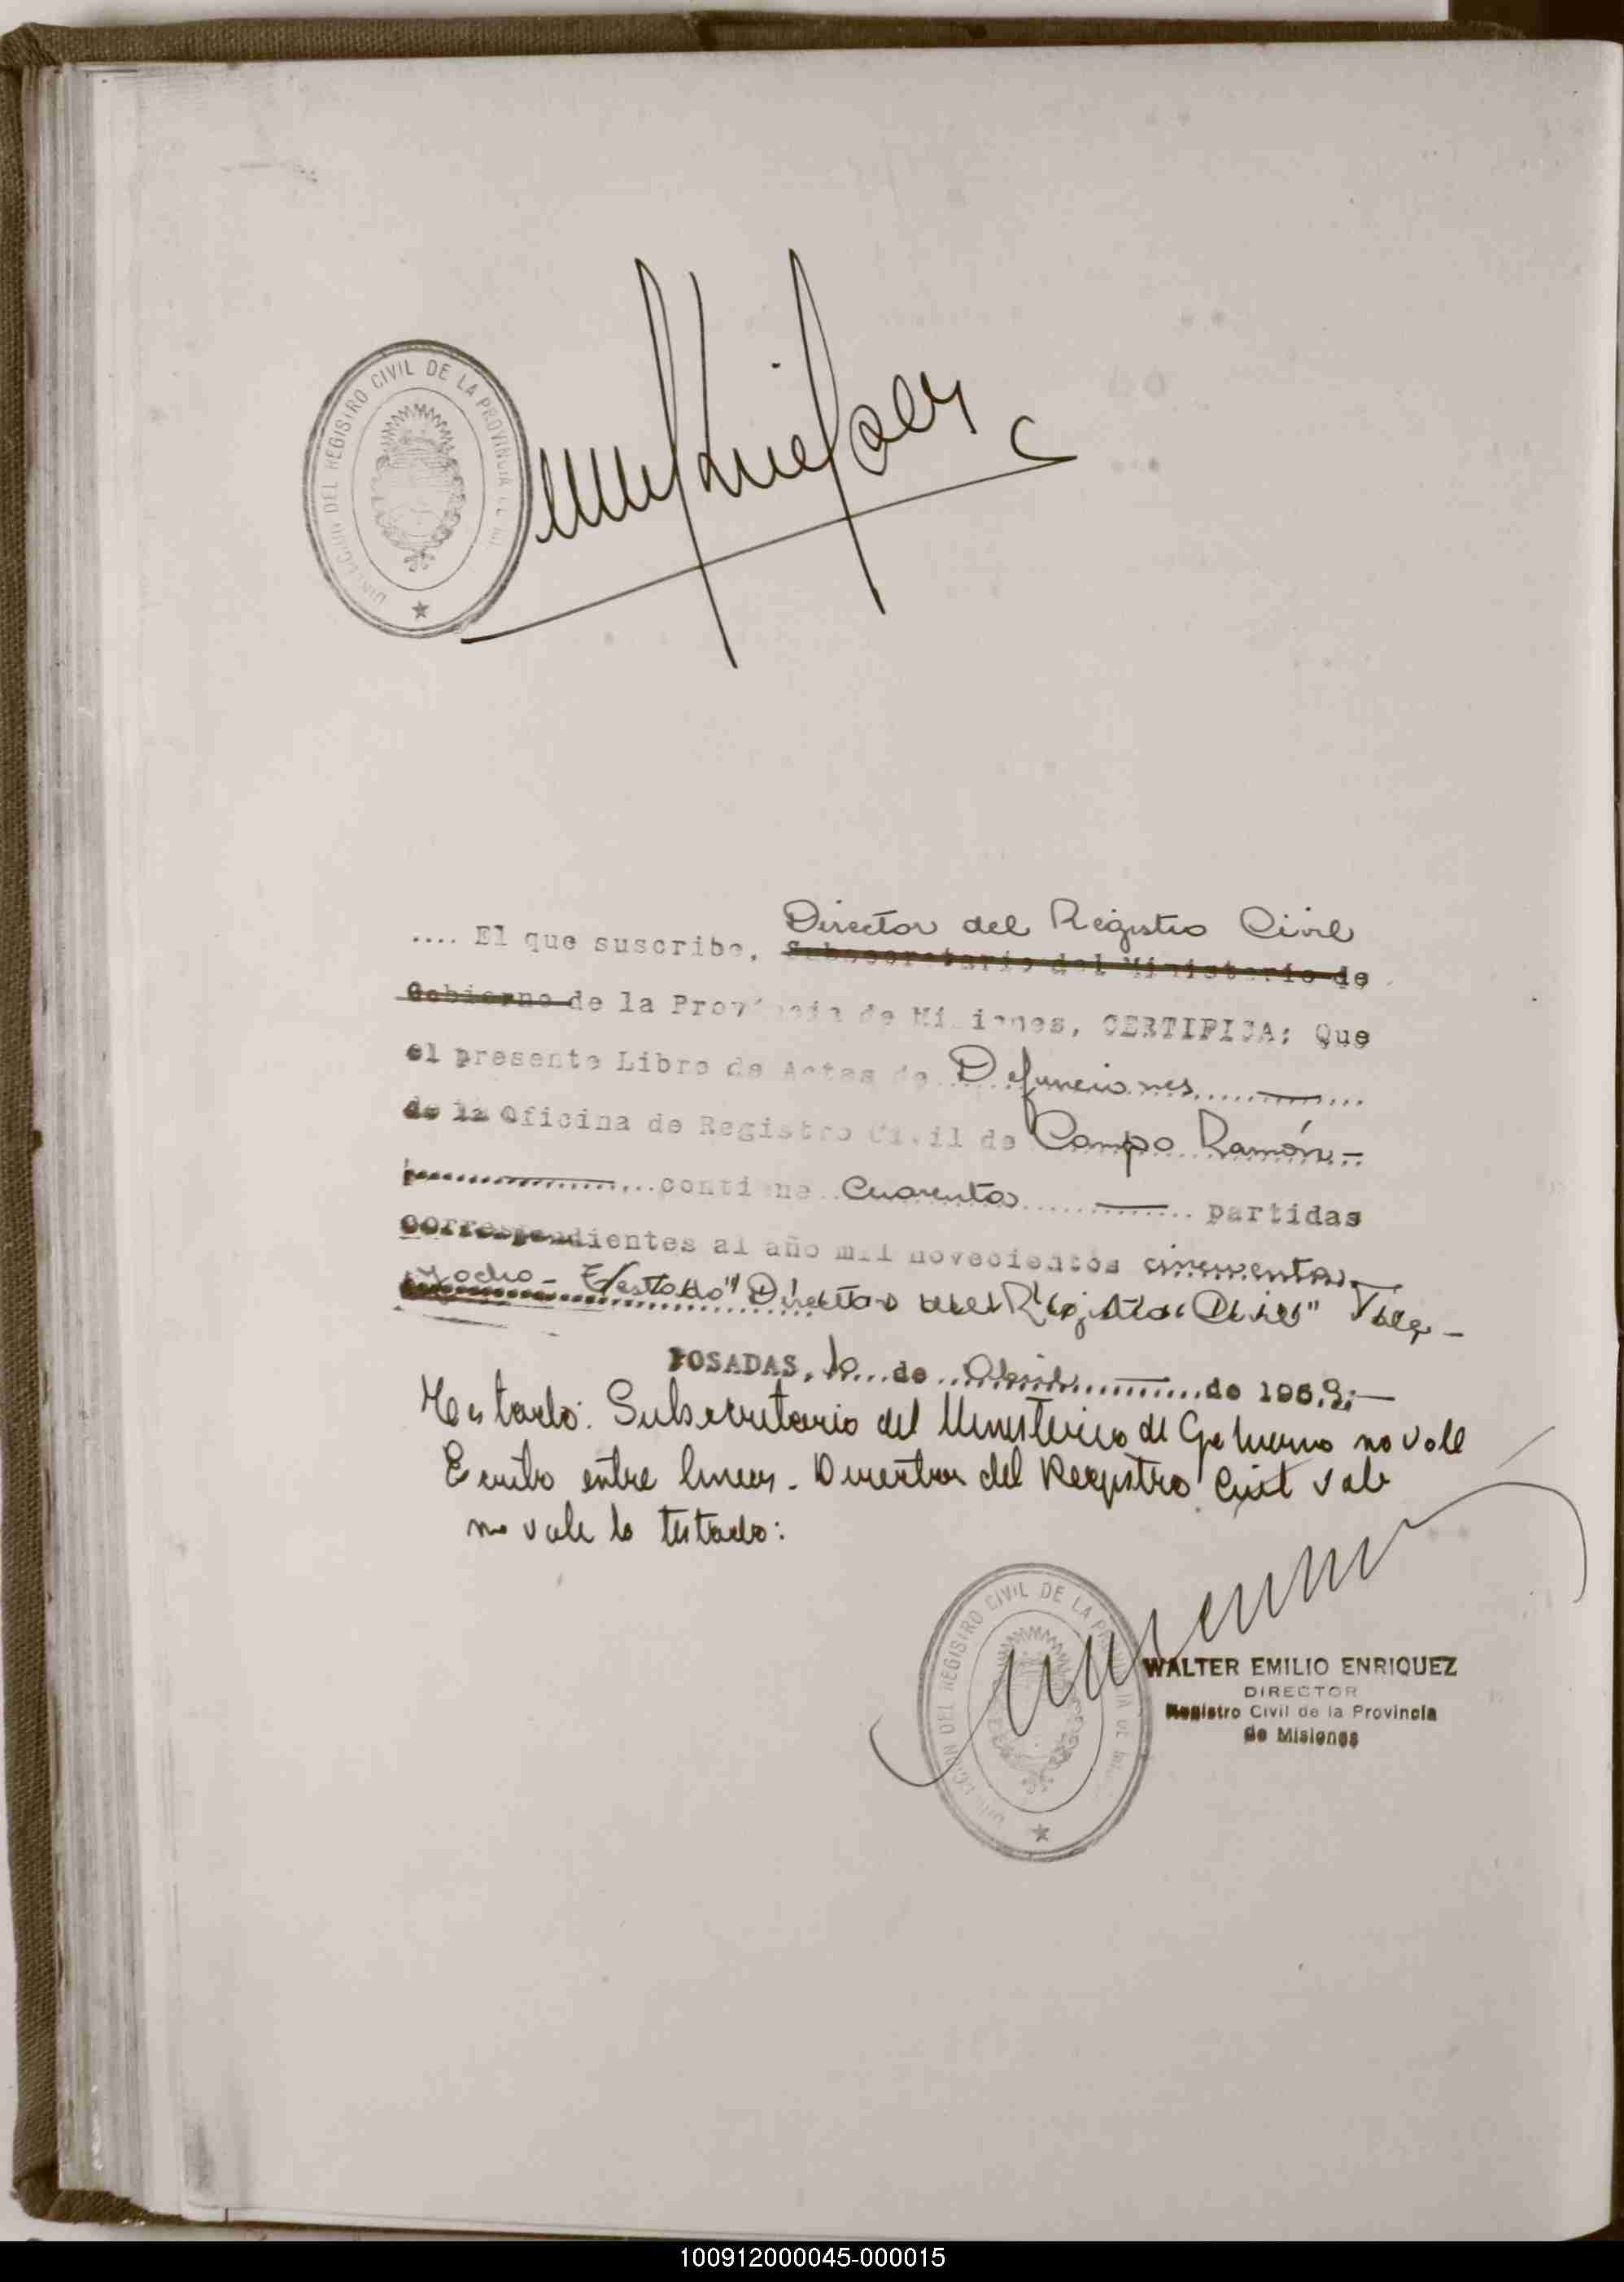 DIRECCION DEL REGISTRO CIVIL DE LA PROVINCIA DE MI
Director del Registro Civil
.... El que suscribe, Subsecretario del Ministerio de
Gobierno de la Provincia de Misiones, CERTIFICA: Que
el presente Libro de Actas de Defunciones
de la Oficina de Registro Civil de Campo Ramón -
contiene Cuarenta partidas
correspondientes al año mil novecientos cincuenta
y ocho - E/ "Director del Registro Civil" Vale -
POSADAS, de Abril de 196
Testado: Subsecretario del Ministerio de Gobierno no vale
Escrito entre lineas - Director del Registro Civil vale
no vale lo testado:
DIRECCION DEL REGISTRO CIVIL DE LA PROVINCIA DE MI
WALTER EMILIO ENRIQUEZ
DIRECTOR
Registro Civil de la Provincia
de Misiones
100912000045-000015